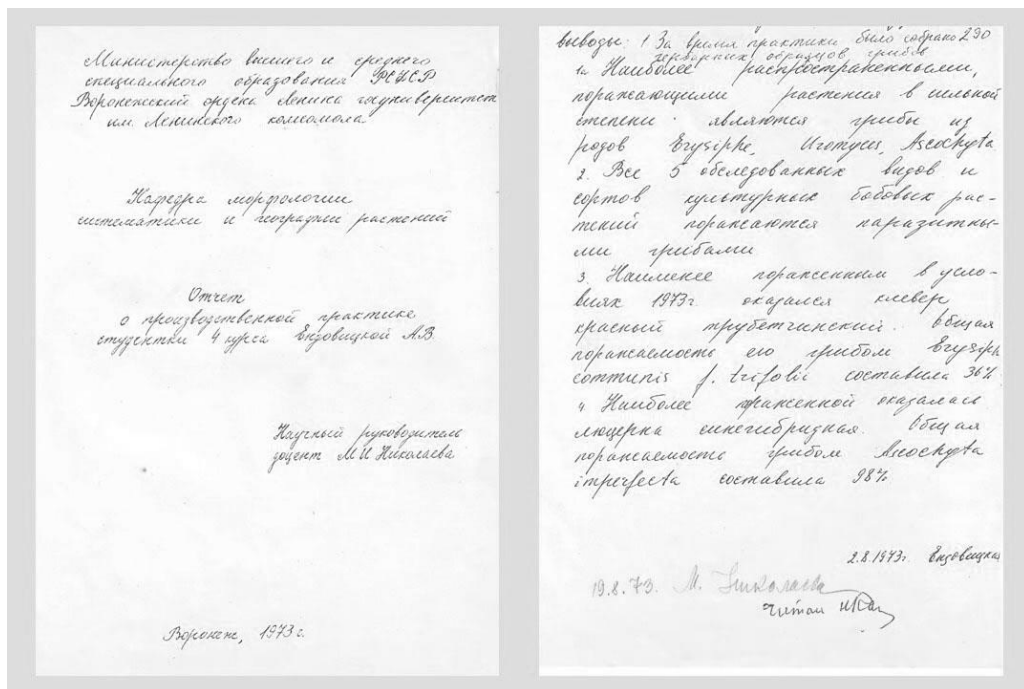 Министерство высшего и среднего
специального образования РСФСР
Воронежский ордена Ленина госуниверситет
им. Ленинского комсомола
Кафедра морфологии
систематики и географии растений
Отчет
о производственной практике
студентки 4 курса Ендовицкой А.В.
Научный руководитель
доцент М.И Николаева
Воронеж, 1973 г.
Выводы: 1 За время практики было собрано 290
гербарных образцов грибов
1а Наиболее распространенными,
поражающими растения в сильной
степени являются грибы из
родов Erysiphe, Uromyces, Ascochyta
2. Все 5 обследованных видов и
сортов культурных бобовых рас-
тений поражаются паразитны-
ми грибами
3. Наименее пораженным в усло-
виях 1973г. оказался клевер
красный трубетчинский. Общая
поражаемость его грибом Erysiph
communis f. trifolii составила 36%
4 Наиболее пораженной оказалась
люцерна синегибридная. Общая
поражаемость грибом Ascochyta
imperfecta составила 98%
2.8.1973г. Ендовицкая
19.8.73. М. Николаева
Читал